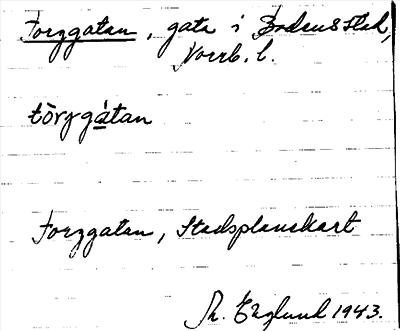 Torggatan, gata i Bodens stad,
Norrb. l.
tòrjgátan
Torggatan, Stadsplanekart
Th. Englund 1943.